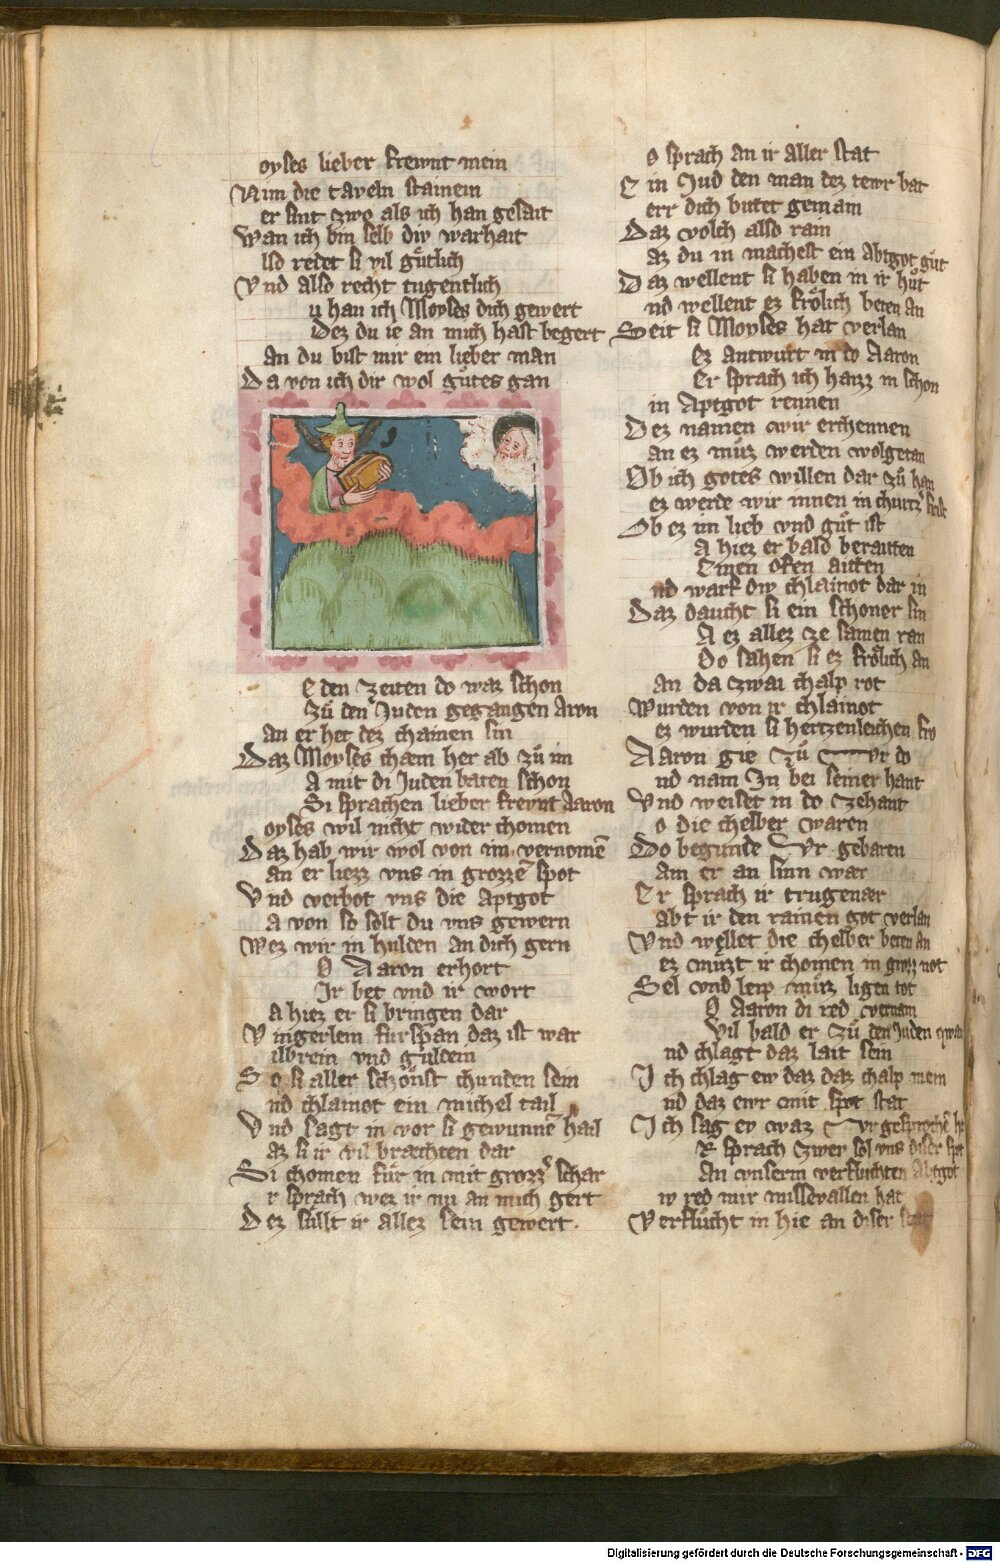 oyses lieber frewnt mein
Nim die taveln stainein
er sint zwo als ich han gesait
Wan ich bin selb diu warhait
lso redet si vil gütlich
Vnd also recht tugentlich
u han ich Moyses dich gewert
Dez du ie an mich hast begert
an du bist mir ein lieber man
Da von ich dir wol gütes gan
e den zeiten do waz schon
Zů den Juden gegangen Aron
an er het dez chainen sin
Daz Moyses chæm her ab zů im
A mit di Juden baten schon
Si sprachen lieber freynt Aaron
oyses wil nicht wider chomen
Daz hab wir wol von im vernomē
an er liezz vns in grozzē spot
Vnd verbot vns die Aptgot
A von so solt du vns gewern
Wez wir in hulden an dich gern
O Aaron erhort
Ir bet vnd ir wort
A hiez er si bringen dar
Vingerlein fürspan daz ist war
ilbrein vnd guldein
So si aller schönst chunden sein
nd chlainot ein michel tail
Vnd sagt in vor si gewunnē hail
az si ir vil bræchten dar
Si chomen für in mit grozz' schar
r sprach wez ir nu an mich gert
Dez süllt ir allez sein gewert.
o sprach an ir aller stat
Ein Jud den man dez tewr bat
err dich bittet gemain
Daz volch also rain
az du in machest ein Abtgot güt
Daz wellent si haben in ir hůt
nd wellent ez frölich beten an
Seit si Moyses hat verlan
Ez antwurt in do Aaron
Er sprach ich hazz in schon
in Aptgot rennen
Dez namen wir erchennen
an ez můz werden wolgetan
Ob ich gotes willen dar zů han
ez werde wir innen in churtz'
Ob ez im lieb vnd gůt ist
A hiez er bald beraitten
Einen ofen aitten
nd warf diu chlainot dar in
Daz daucht si ein schöner sin
A ez allez ze samen ran
Do sahen si ez frölich an
an da zwai chalp rot
Wurden von ir chlainot
ez wurden si hertzenleichen fro
Aaron gie zů Vr do
nd nam In bei seiner hant
Vnd weiset in do zehant
o die chelber waren
Do begunde Vr gebaren
am er an sinn wær
Er sprach ir trugenær
abt ir den rainen got verlan
Vnd wellet die chelber beten an
ez můzt ir chomen in grozz not
Sel vnd leip můz ligen tot
O Aaron di red vernam
Vil bald er zů den Juden
nd chlagt daz lait sein
Ich chlag ew daz daz chalp mein
nd daz ewr mit spot stat
Ich sag ev waz Vr gesprochē
R sprach zwer sol vns diser
An vnserm verfluchten Abtgot
w red mir missevallen hat
Verflůcht in hie an diser stat